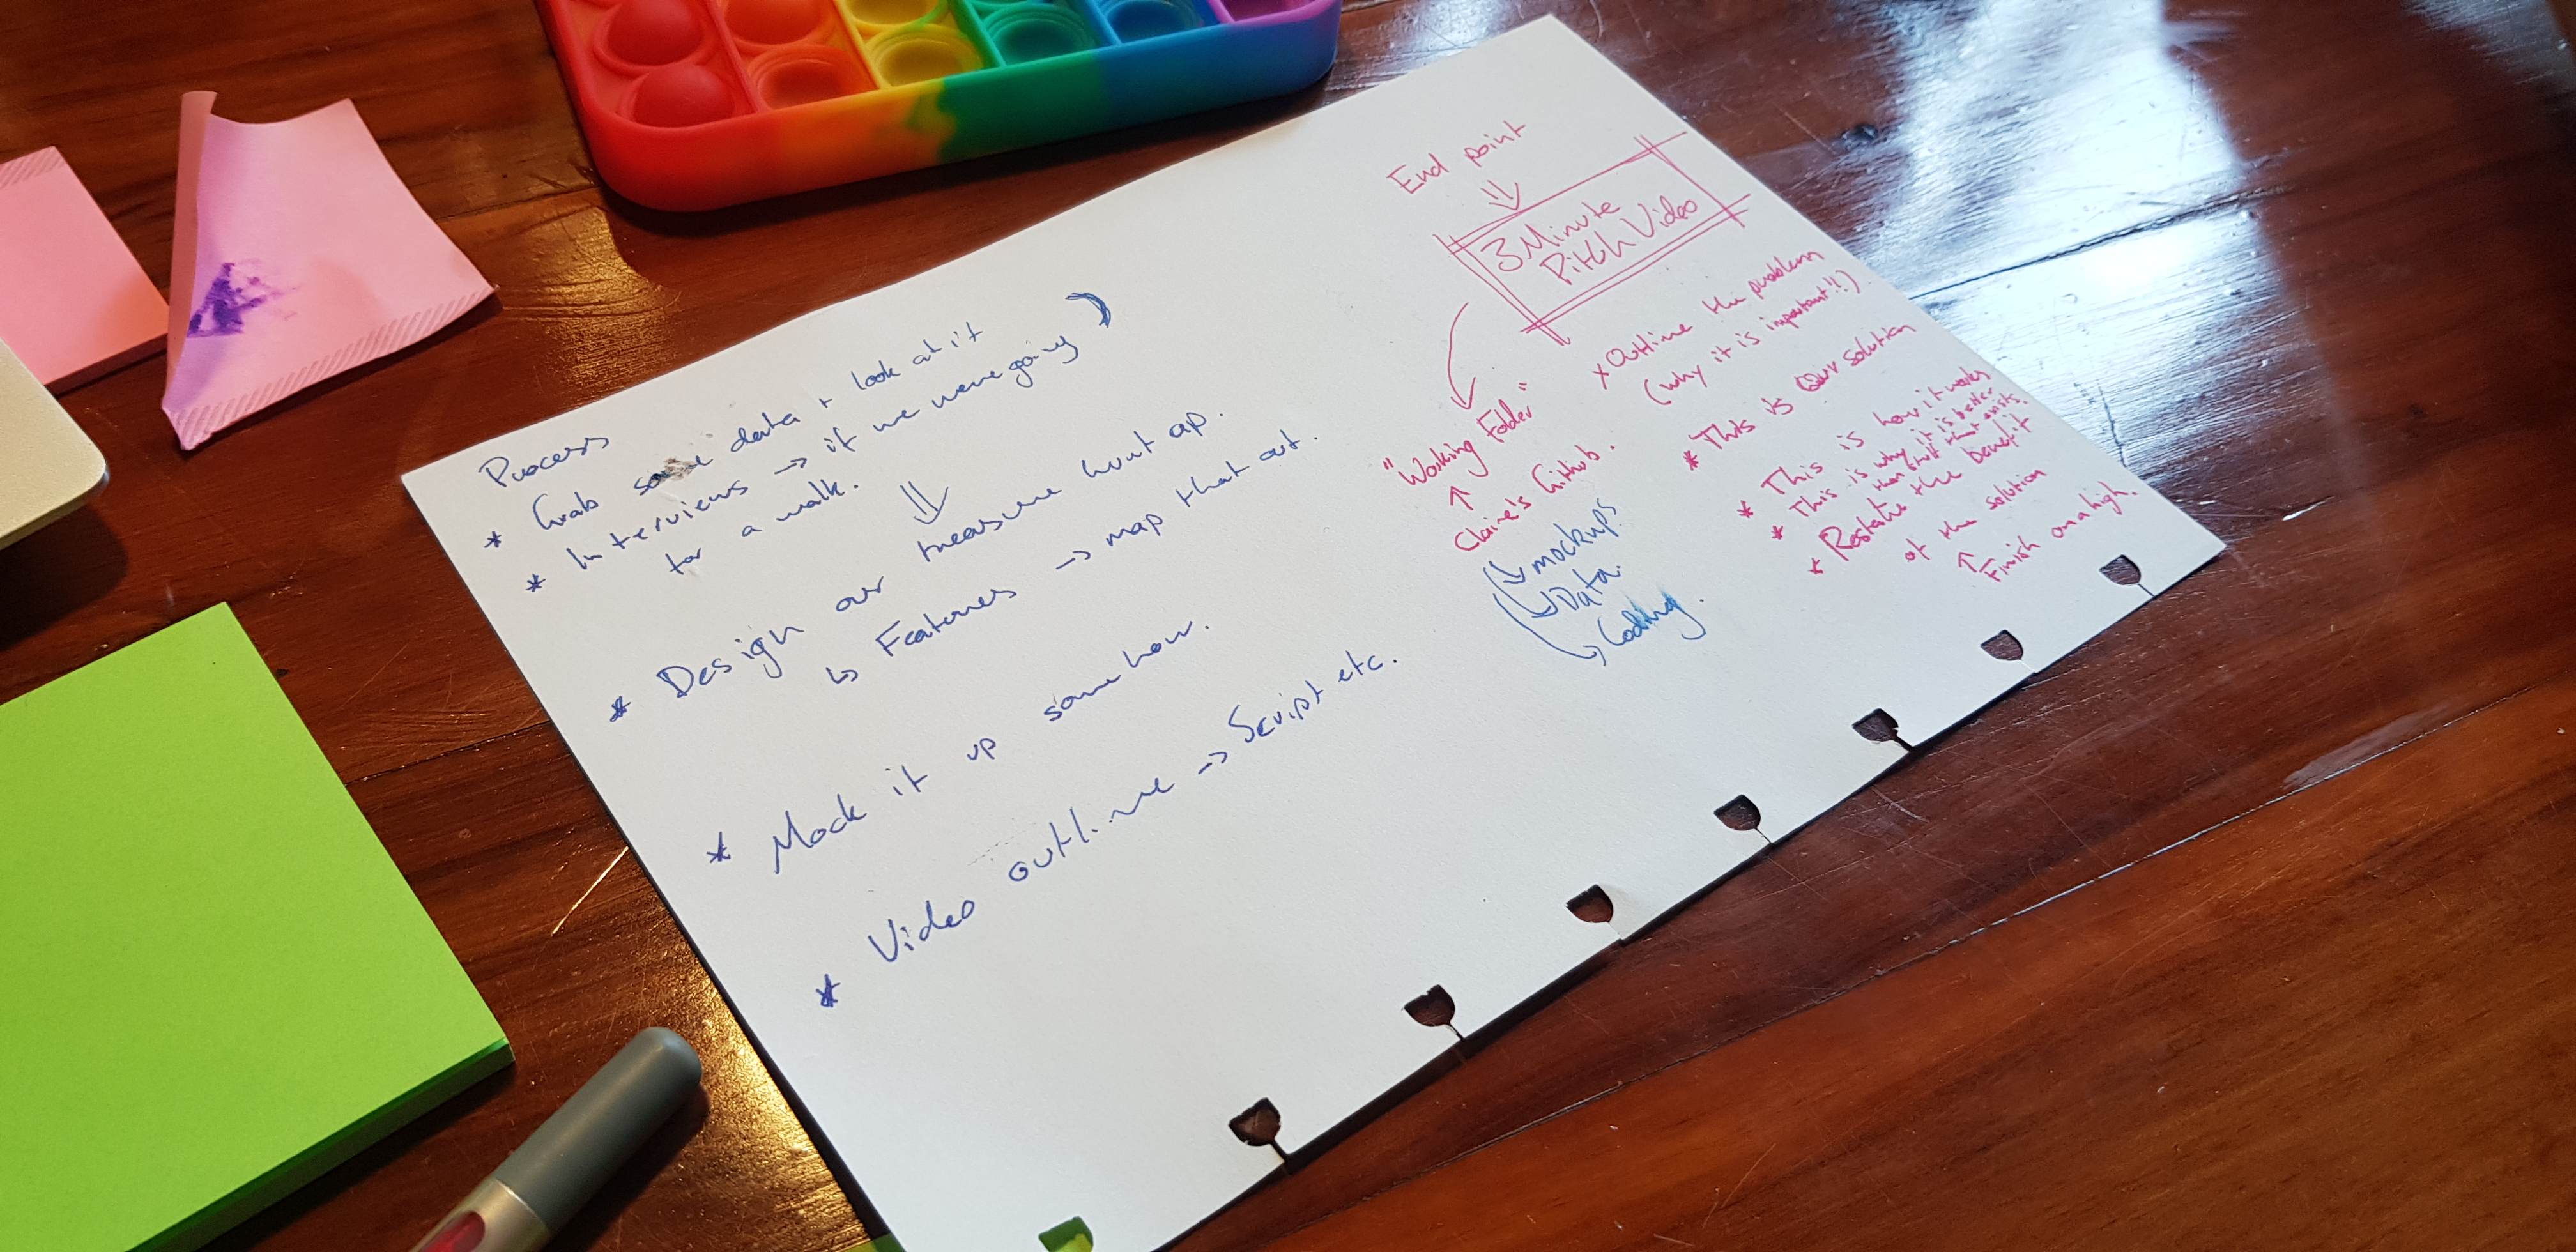 Process
* Grab some data + look at it
* Interviews → if we were going
for a walk.
⇓
* Design our treasure hunt app.
↳ Features → map that out.
* Mock it up somehow.
* Video outline → Script etc.
End point
⇓
3 Minute
Pitch Video
"Working Folder"
↑
Claire's Github.
↳ mockups
↳ Data.
↳ Coding.
* Outline the problem
(why it is important!!)
* This is Our solution
* This is how it works
* This is why it is better
than that exists.
* Restate the benefit
of the solution
↑
Finish on a high.